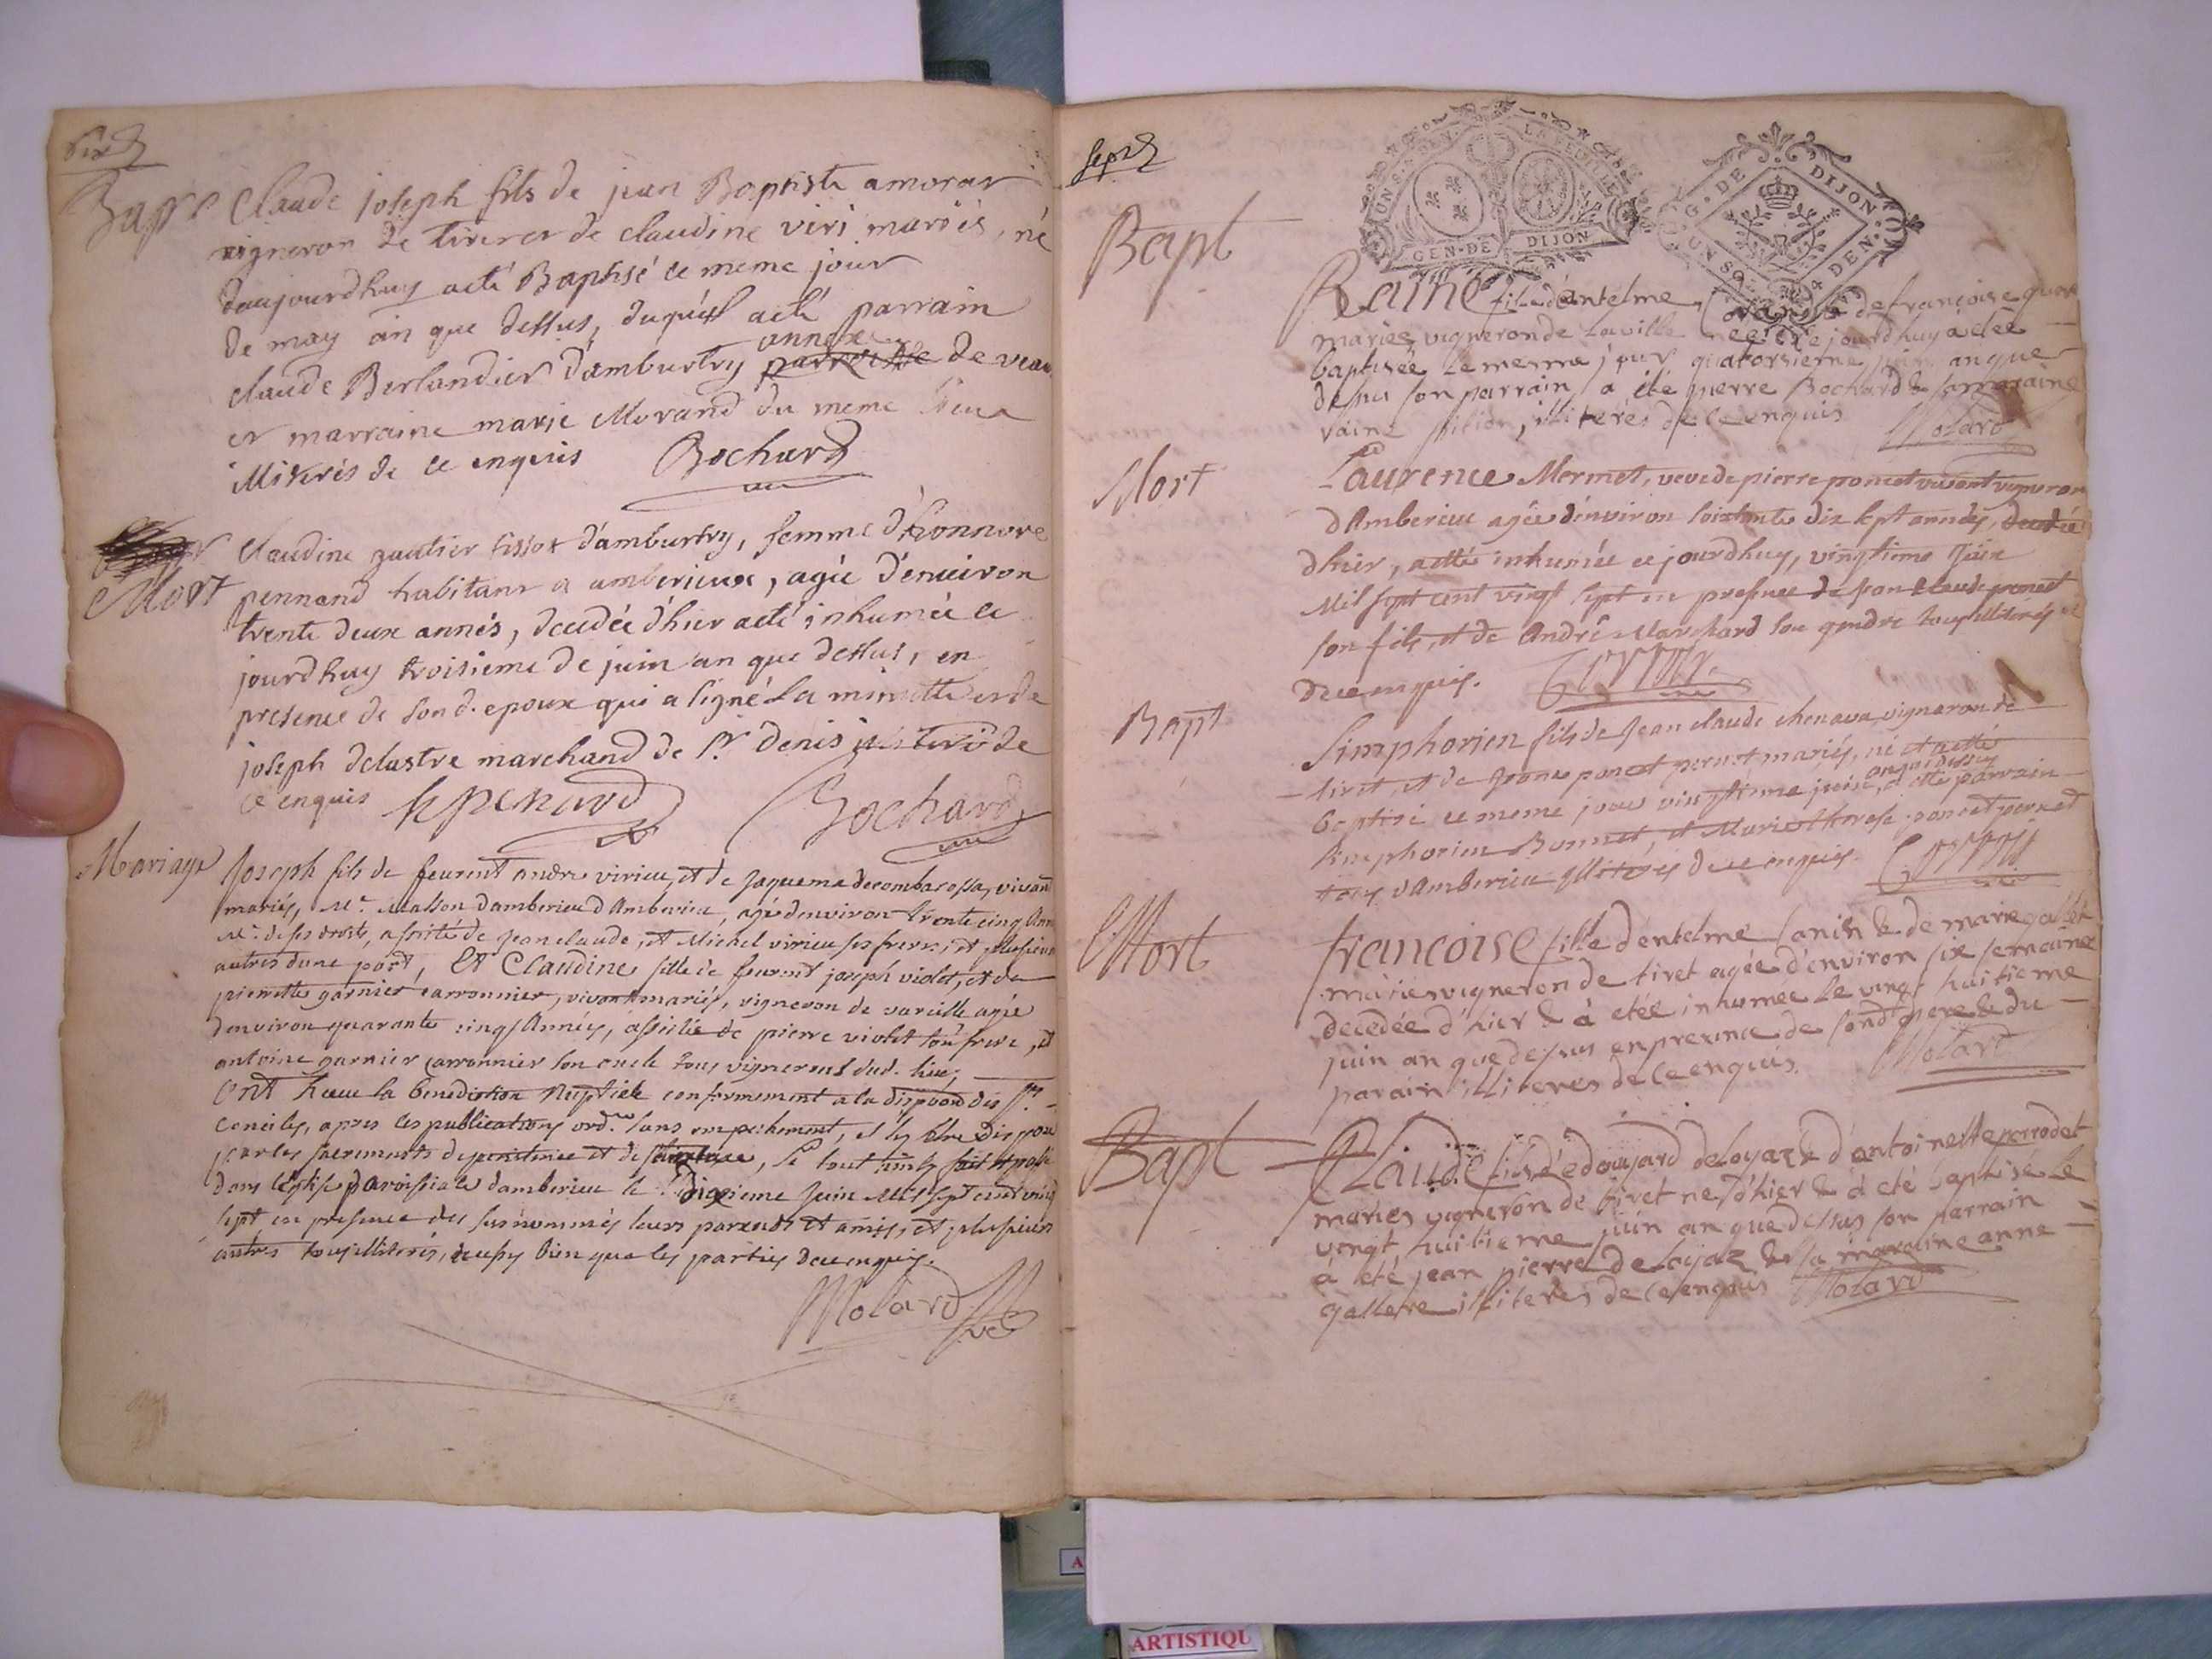 six
Bapt
Claude joseph fils de jean Baptiste amorar
vigneron de tiret et de claudine viri mariés, né
daujourdhuy a eté Baptisé ce meme jour
de may an que dessus, duquel a eté parrain
annexe
claude Berlandier d'amburtry de
et marraine marie Morand du meme lieux
illiterés de ce enquis Bochard
Mort
claudine gautier tissot d'amburtry, femme d'honnore
pennand habitant a amberieux, agée d'enuiron
trente deux annés, decedée d'hier a eté inhumée ce
jourdhuy troisieme de juin an que dessus, en
presence de son d. epoux qui a signé la minutte et de
joseph delastre marchand de St. denis de
ce enquis Bochard
Mariage
Joseph fils de feurent andre virieu, et de Jaquema decombacossa, vivant
mariés, Mr. Masson damberieu d'Amberieu, agé denviron trente cinq Ann
Mr. de ses droits, assisté de Jean claude, et Michel virieu ses freres, et plusieurs
autres dune part, Et Claudine fille de feurent joseph violet, et de
pierrette garnier carronnier, vivant mariés, vigneron de vareille agée
denviron quarante cinq Années, assistée de pierre violet son frere, et
antoine garnier carronnier son oncle tous vignerons dud. lieu,
Ont Receu la benediction Nuptiale conformement a la des Sts
conciles, apres les publications ord. sans empechement, et
par les sacrements de penitence et de, le tout fait et passé
dans léglise paroissiale damberieu le dixieme Juin Mil sept cent vingt
sept en presence des susnommés leurs parends et amis, et plusieurs
autres tous illiterés, aussy bien que les parties de ce enquis.
Molard
sept
GEN. DE DIJON
G. DE DIJON
UN SO. DEN.
Bapt
fille d'antelme de françoise
mariés vigneron de Laville née ce jourdhuy a étée
baptisée le mesme jour quatorsieme juin an que
desus son parrain a été pierre Bochard & sa maraine
illiterés de ce enquis Molard
Mort
Laurence Mermet, veve de pierre poncet vivant vigneron
d'Amberieu agée denviron soixante dix sept années, decedée
dhier, a etté inhumée ce jourdhuy, vingtieme Juin
Mil sept cent vingt sept en presence de Jean Claude poncet
son fils, et de André Marchard son gendre tous illiterés
de ce enquis.
Bapt
Simphorien fils de Jean claude chenava vigneron de
tiret, et de Jeanne poncet pernet mariés, né et a etté
an que dessus
baptisé ce meme jour vingtieme juin, a etté parrain
Simphorien Bonnet, et Marie therese poncet pernet
tous d'Amberieu illiterés de ce enquis.
Mort
francoise fille d'entelme Sanin & de marie gallet
mariés vigneron de tiret agée d'environ six semaines
decedée d'hier & à etée inhumée le vingt huitieme
juin an que desus en presence de sond pere & du
parain illiteres de ce enquis. Molard
Bapt
Claude fils d'edouard deloyaz & d'antoinette perrodet
mariés vigneron de tiret né d'hier & à eté baptisé le
vingt huitieme juin an que dessus son parrain
à eté jean pierre deloyaz & sa maraine anne
gallette illiterés de ce enquis Molard
ARTISTIQU